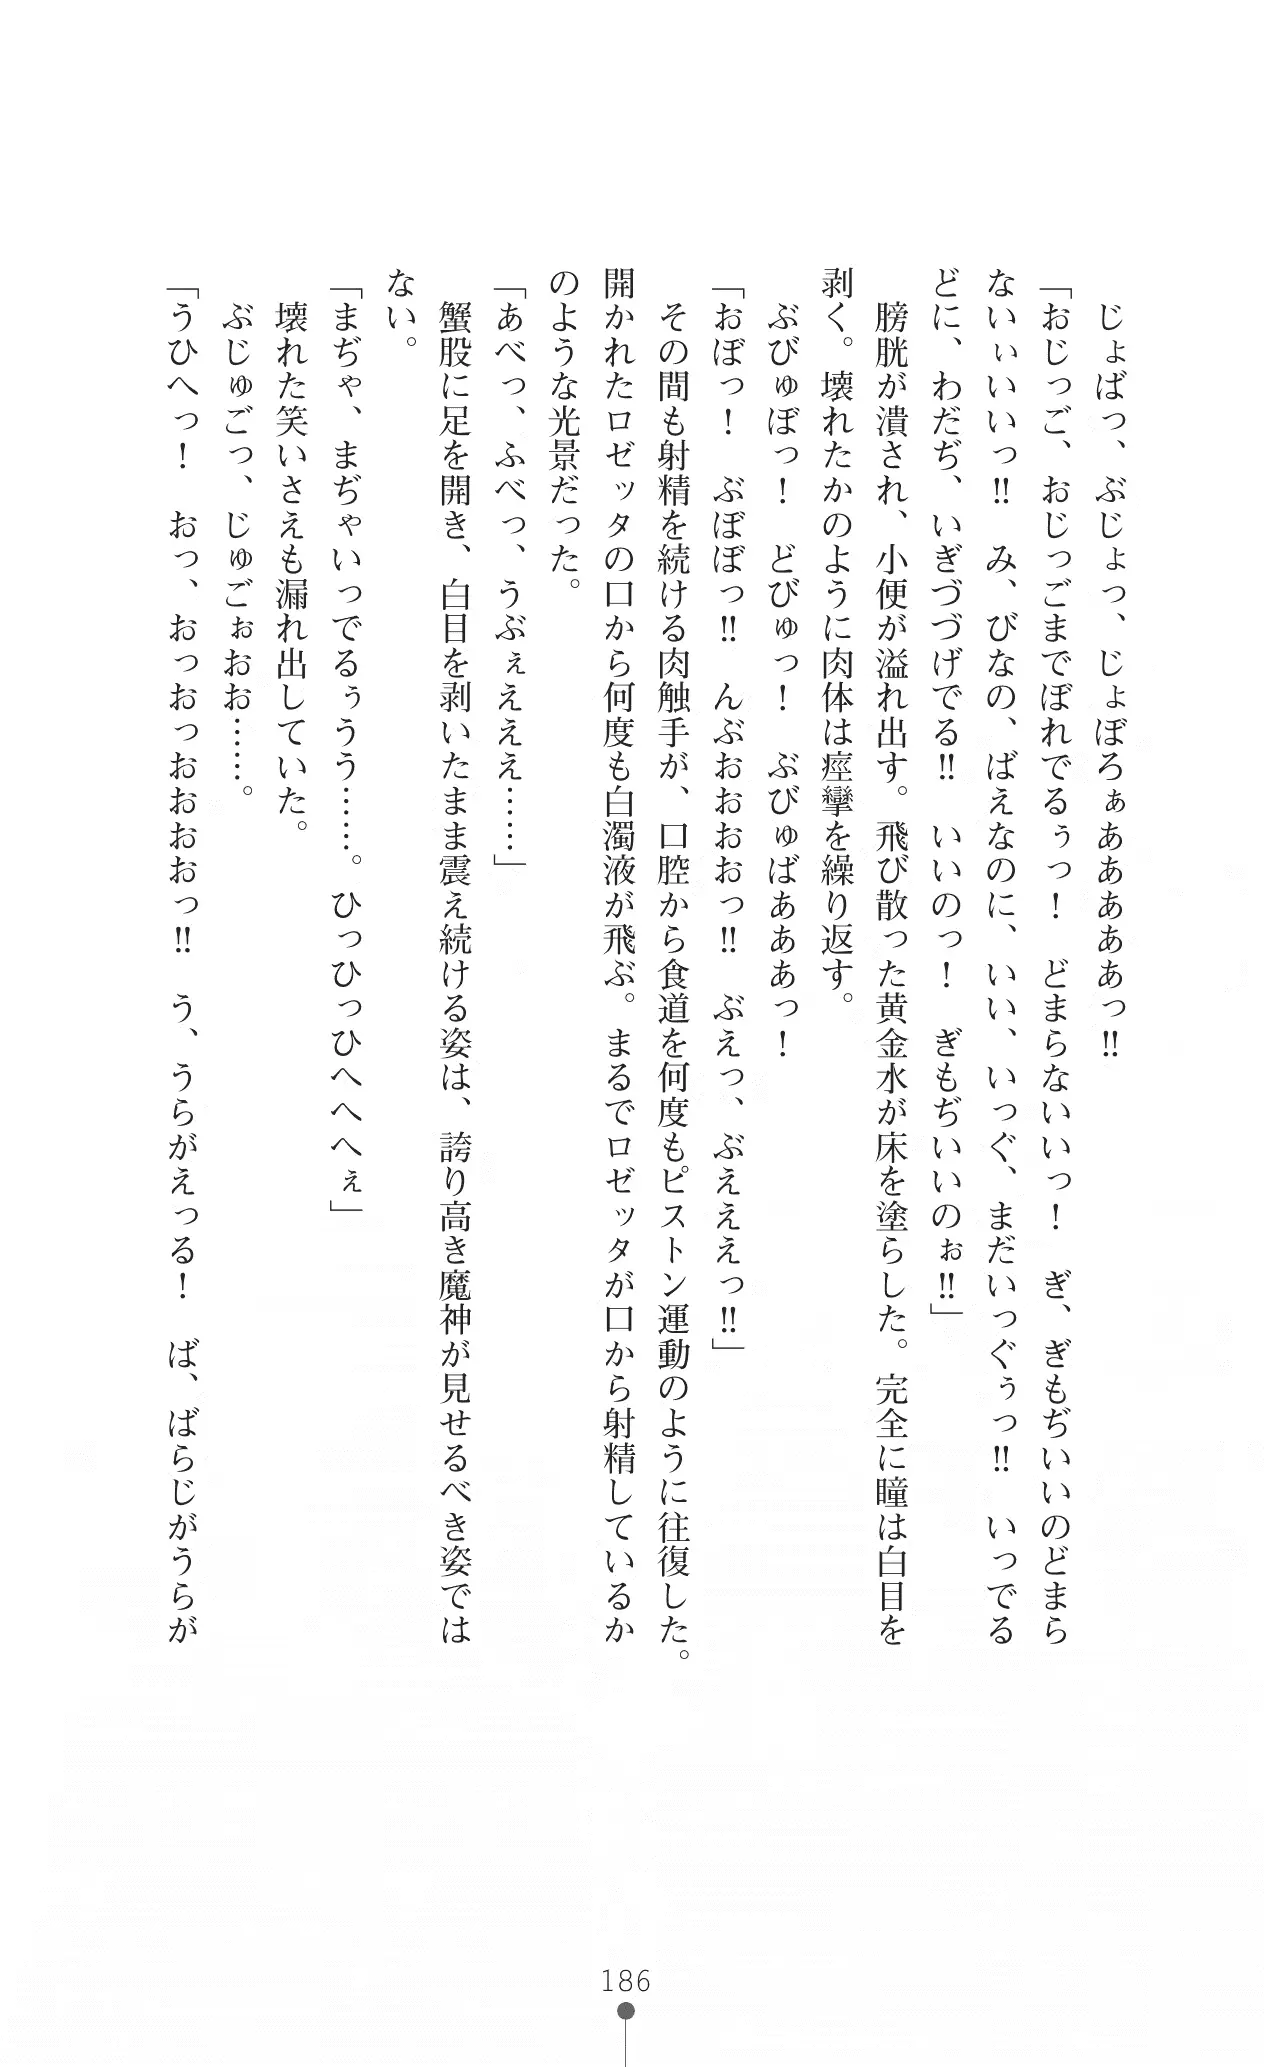 じょばっ、ぶじょっ、じょぼろぁああああっ‼
「おじっご、おじっごまでぼれでるぅっ！　どまらないいっ！　ぎ、ぎもぢいいのどまら
ないぃいいっ‼　み、びなの、ばえなのに、いい、いっぐ、まだいっぐぅっ‼　いっでる
どに、わだぢ、いぎづづげでる‼　いいのっ！　ぎもぢいいのぉ‼」
膀胱が潰され、小便が溢れ出す。飛び散った黄金水が床を塗らした。完全に瞳は白目を
剥く。壊れたかのように肉体は痙攣を繰り返す。
ぶびゅぼっ！　どびゅっ！　ぶびゅばあああっ！
「おぼっ！　ぶぼぼっ‼　んぶおおおおっ‼　ぶえっ、ぶえええっ‼」
その間も射精を続ける肉触手が、口腔から食道を何度もピストン運動のように往復した。
開かれたロゼッタの口から何度も白濁液が飛ぶ。まるでロゼッタが口から射精しているか
のような光景だった。
「あべっ、ふべっ、うぶぇえええ……」
蟹股に足を開き、白目を剥いたまま震え続ける姿は、誇り高き魔神が見せるべき姿では
ない。
「まぢゃ、まぢゃいっでるぅうう……。ひっひっひへへへぇ」
壊れた笑いさえも漏れ出していた。
ぶじゅごっ、じゅごぉおお……。
「うひへっ！　おっ、おっおっおおおおっ‼　う、うらがえっる！　ば、ばらじがうらが
186